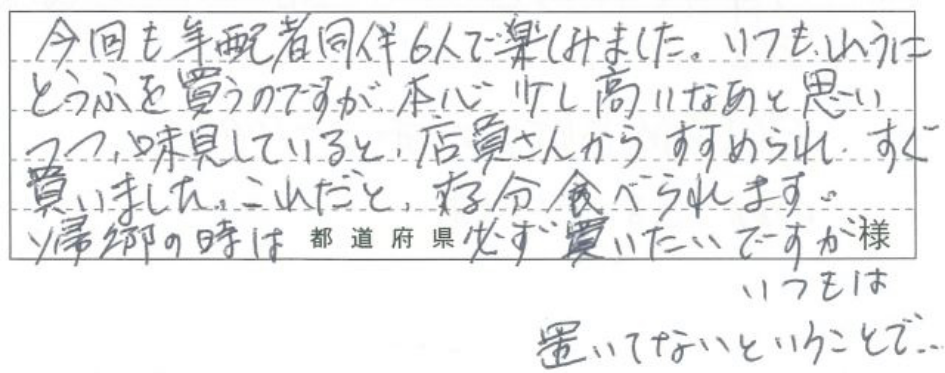 今回も年配者同伴6人で楽しみました。いつも、しゅうに
とうふを買うのですが、本心少し高いなあと思い
つつ、味見していると、店員さんからすすめられ、すぐ
買いました。これだと、存分食べられます。
帰郷の時は 都道府県 必ず買いたいですが 様
いつもは
置いてないということで…